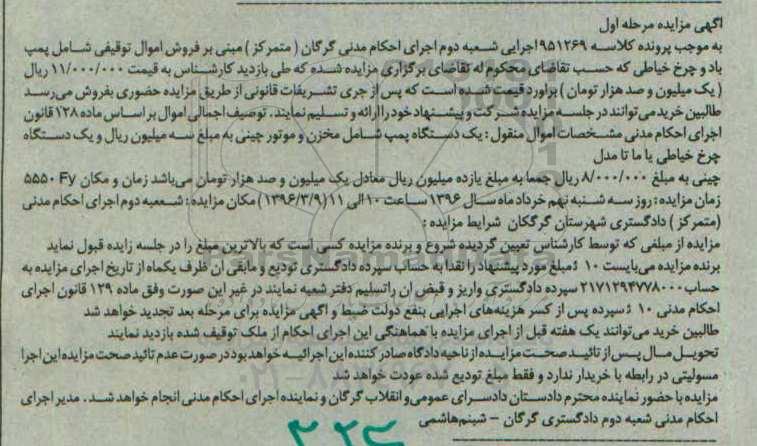 آگهی مزایده مرحله اول
به موجب پرونده کلاسه ۹۵۱۲۶۹ اجرایی شعبه دوم اجرای احکام مدنی گرگان ( متمرکز ) مبنی بر فروش اموال توقیفی شامل پمپ
باد و چرخ خیاطی که حسب تقاضای محکوم له تقاضای برگزاری مزایده شده که طی بازدید کارشناس به قیمت ۱۱/۰۰۰/۰۰۰ ریال
( یک میلیون و صد هزار تومان ) برآورد قیمت شده است که پس از جری تشریفات قانونی از طریق مزایده حضوری بفروش می‌رسد
طالبین خرید می‌توانند در جلسه مزایده شرکت و پیشنهاد خود را ارائه و تسلیم نمایند . توصیف اجمالی اموال بر اساس ماده ۱۲۸ قانون
اجرای احکام مدنی مشخصات اموال منقول : یک دستگاه پمپ شامل مخزن و موتور چینی به مبلغ سه میلیون ریال و یک دستگاه
چرخ خیاطی یا ما تا مدل
چینی به مبلغ ۸/۰۰۰/۰۰۰ ریال جمعا به مبلغ یازده میلیون ریال معادل یک میلیون و صد هزار تومان می‌باشد زمان و مکان ۵۵۵۰ Fy
زمان مزایده : روز سه شنبه نهم خرداد ماه سال ۱۳۹۶ ساعت ۱۰ الی ۱۱ (۱۳۹۶/۳/۹) مکان مزایده : شعبه دوم اجرای احکام مدنی
(متمرکز ) دادگستری شهرستان گرگکان شرایط مزایده :
مزایده از مبلغی که توسط کارشناس تعیین گردیده شروع و برنده مزایده کسی است که بالاترین مبلغ را در جلسه زایده قبول نماید
برنده مزایده می‌بایست ۱۰ ٪ مبلغ مورد پیشنهاد را نقدا به حساب سپرده دادگستری تودیع و مابقی ان ظرف یکماه از تاریخ اجرای مزایده به
حساب ۲۱۷۱۲۹۴۷۷۸۰۰۰ سپرده دادگستری واریز و قبض ان راتسلیم دفتر شعبه نمایند در غیر این صورت وفق ماده ۱۲۹ قانون اجرای
احکام مدنی ۱۰ ٪ سپرده پس از کسر هزینه‌های اجرایی بنفع دولت ضبط و اگهی مزایده برای مرحله بعد تجدید خواهد شد
طالبین خرید می‌توانند یک هفته قبل از اجرای مزایده با هماهنگی این اجرای احکام از ملک توقیف شده بازدید نمایند
تحویل مال پس از تائید صحت مزایده از ناحیه دادگاه صادر کننده این اجرائیه خواهد بود در صورت عدم تائید صحت مزایده این اجرا
مسولیتی در رابطه با خریدار ندارد و فقط مبلغ تودیع شده عودت خواهد شد
مزایده با حضور نماینده محترم دادستان دادسرای عمومی و انقلاب گرگان و نماینده اجرای احکام مدنی انجام خواهد شد . مدیر اجرای
احکام مدنی شعبه دوم دادگستری گرگان – شبنم هاشمی